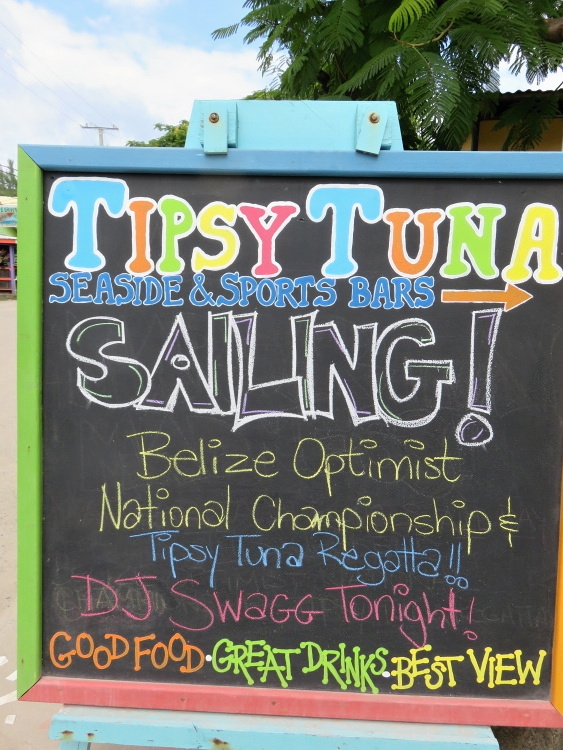 TIPSY TUNA
SEASIDE & SPORTS BARS
SAILING!
Belize Optimist
National Championship &
Tipsy Tuna Regatta!!
DJ Swagg Tonight!
GOOD FOOD · GREAT DRINKS · BEST VIEW